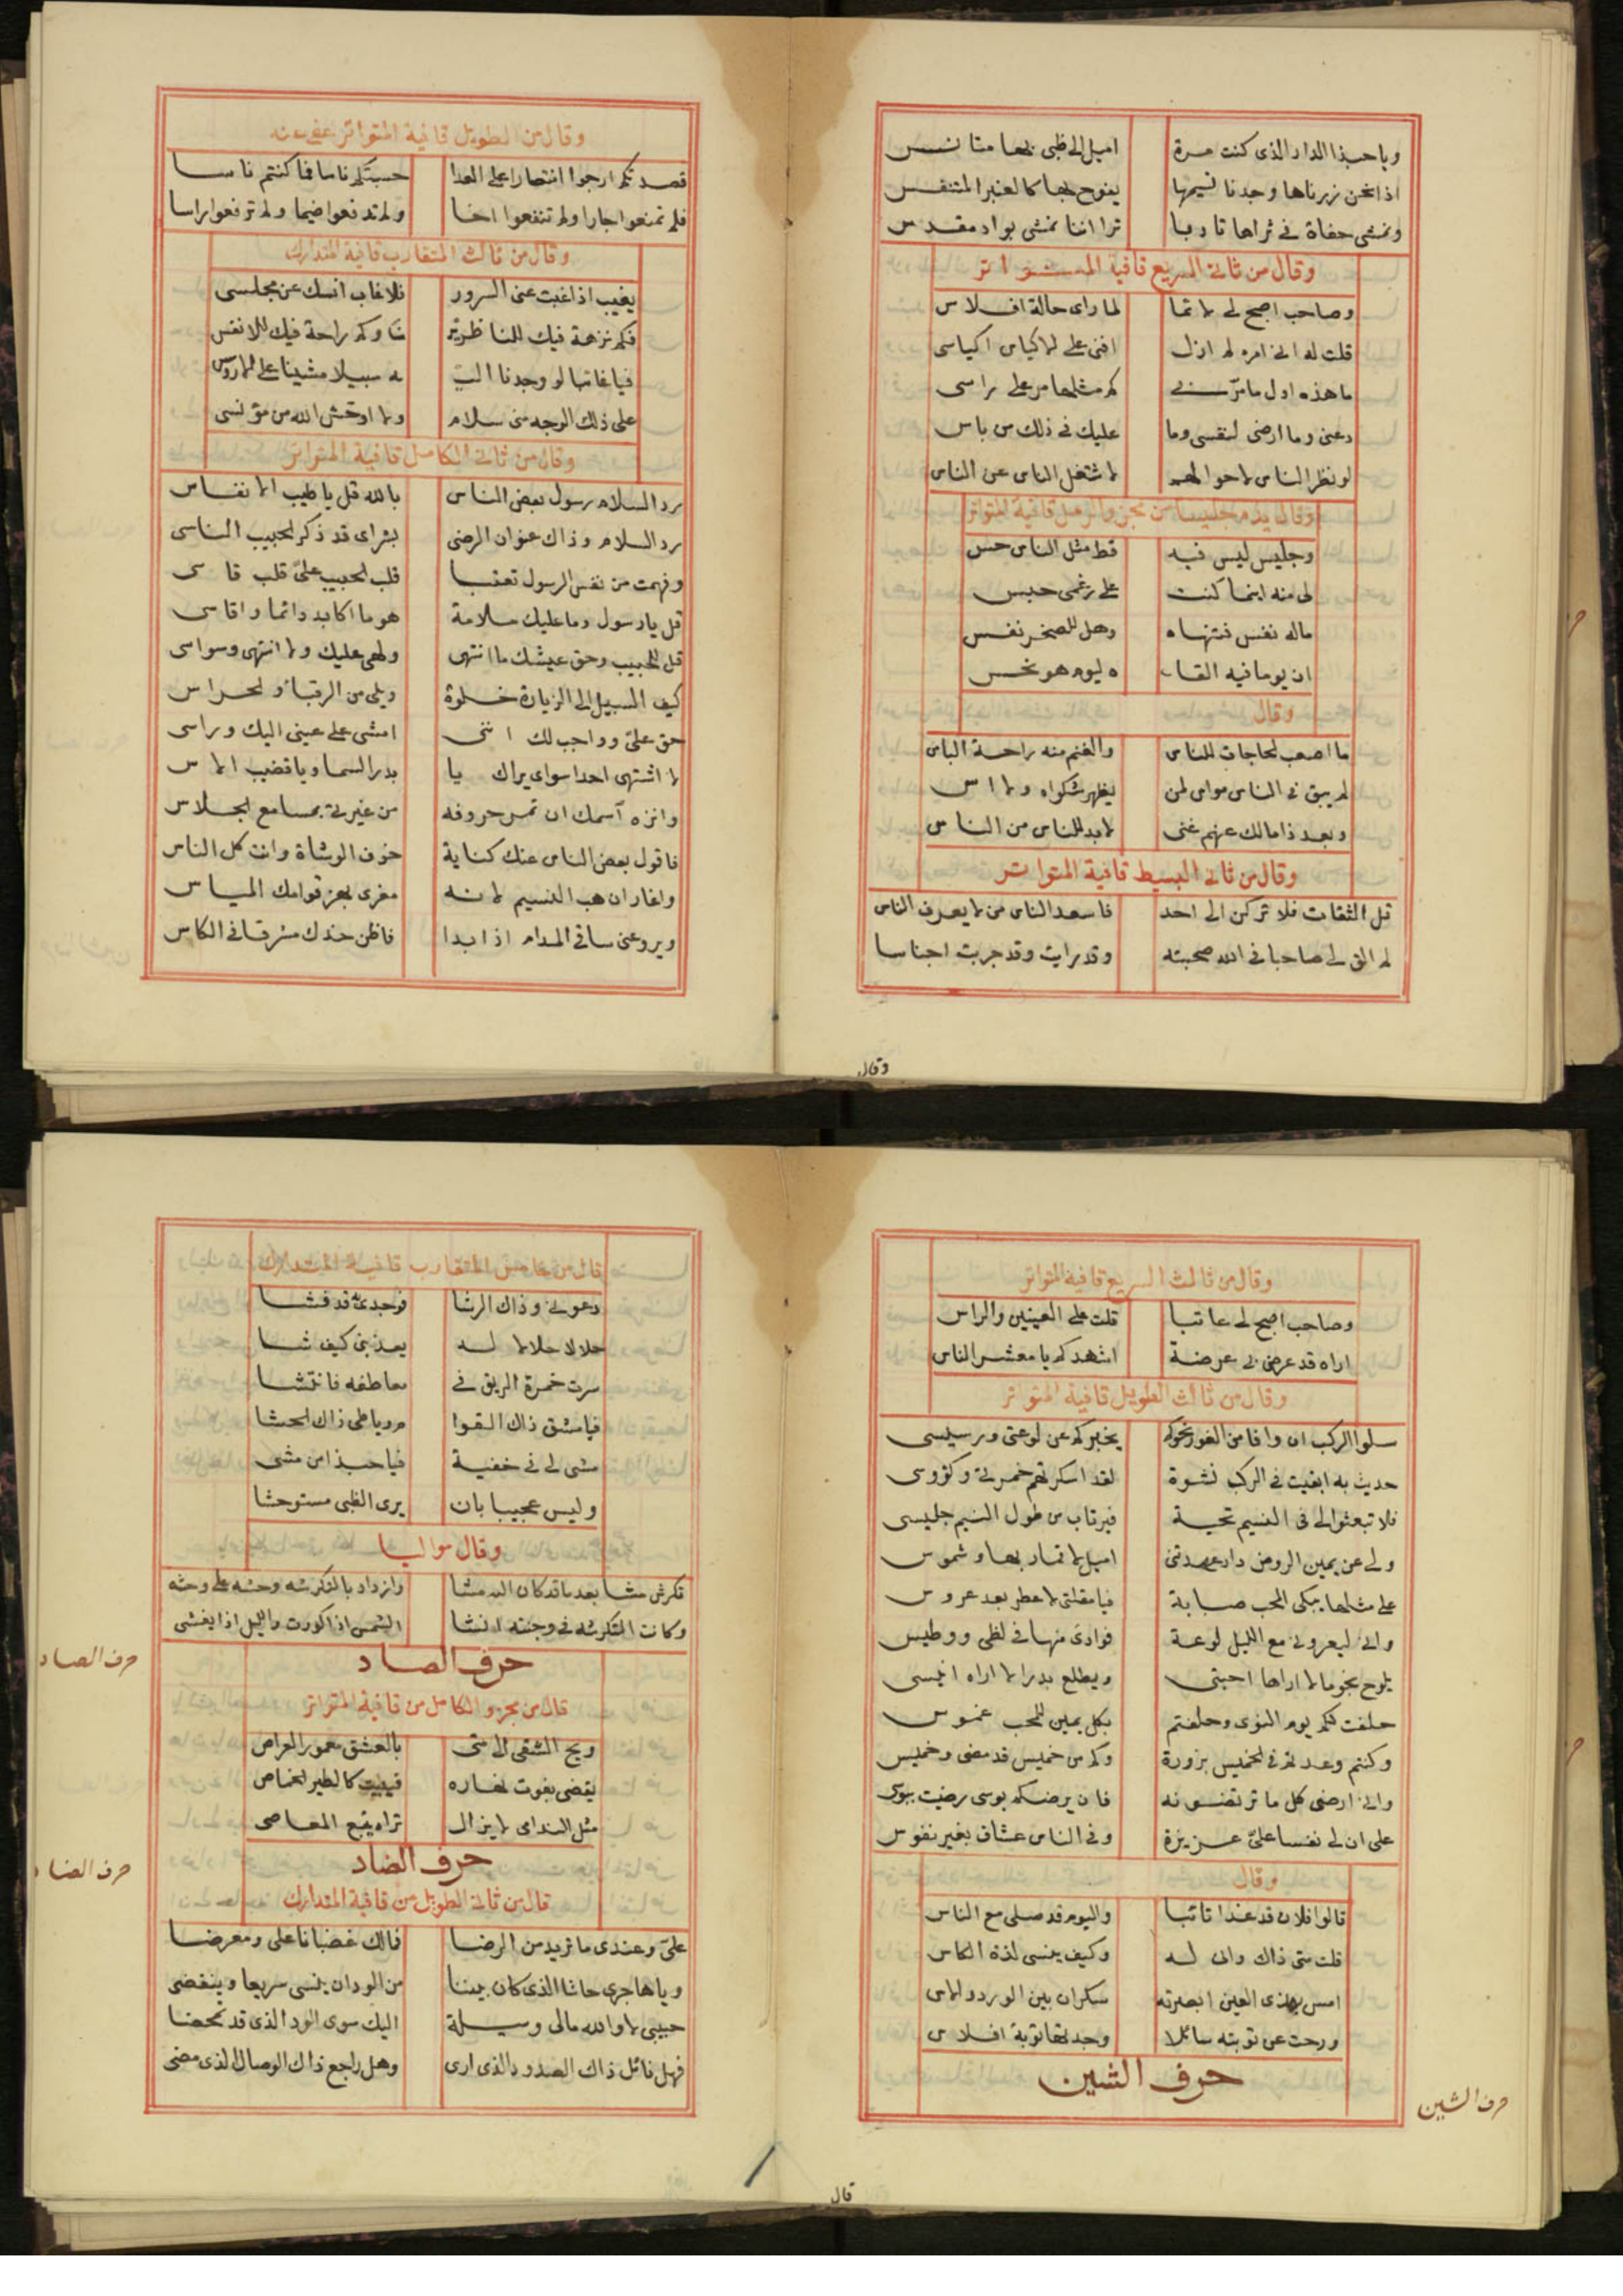 ويا حبذا الدار الذى كنت مرة اميل الى ظبى بها متانس
اذا نحن زرناها وجدنا نسيمها يفوح بها كالعنبر المتنفس
ونمشى حفاة فى ثراها تادبا ترا اننا نمشى بواد مقدس
وقال من ثانى السريع قافية المتواتر
وصاحب اصبح لى لائما لما راى حالة افلاس
قلت له انى امره لم ازل افنى على الاكياس اكياسى
ما هذه اول ما مر بى كم مثلها مر على راسى
دعنى وما ارضى لنفسى وما عليك فى ذلك من باس
لو نظر الناس لاحوالهم لاشتغل الناس عن الناس
وقال يذم جليسا من مجزو الرمل قافية المتواتر
وجليس ليس فيه قط مثل الناس حس
لى منه اينما كنت على رغمى حبس
ماله نفس فتنهاه وهل للصخر نفس
ان يوما فيه القاه ليوم هو نحس
وقال
ما اصعب الحاجات للناس والغنم منه راحة الياس
لم يبق فى الناس مواس لمن يظهر شكواه ولا اس
وبعد ذا مالك عنهم غنى لابد للناس من الناس
وقال من ثانى البسيط قافية المتواتر
قل الثقات فلا تركن الى احد فاسعد الناس من لا يعرف الناس
لم الق لى صاحبا فى الله صحبته وقد رايت وقد جربت اجناسا
وقال
وقال من الطويل قافية المتواتر عفى عنه
قصدتكم ارجوا انتصارا على العدا حسبتكم ناسا فما كنتم ناسا
فلم تمنعوا جارا ولم تنفعوا اخا ولم تدفعوا ضيما ولم ترفعوا راسا
وقال من ثالث المتقارب قافية المتدارك
يغيب اذا غبت عنى السرور فلا غاب انسك عن مجلسى
فكم نزهة فيك للناظرين وكم راحة فيك للانفس
فيا غائبا لو وجدنا اليه سبيلا مشينا على الاروس
على ذلك الوجه منى سلام ولا اوحش الله من مؤنسى
وقال من ثانى الكامل قافية المتواتر
رد السلام رسول بعض الناس بالله قل يا طيب الانفاس
رد السلام وذاك عنوان الرضى بشراى قد ذكر الحبيب الناسى
وفهمت من نفس الرسول تعتبا قلب الحبيب على قلب قاسى
قل يا رسول وما عليك ملامة هو ما اكابد دائما واقاسى
قل للحبيب وحق عيشك ما انتهى ولهى عليك ولا انتهى وسواسى
كيف السبيل الى الزيارة خلوة ويلى من الرقباء والحراس
حق على وواجب لك اننى امشى على عينى اليك وراسى
لا اشتهى احدا سواى يراك يا بدر السما ويا قضيب الاس
وانزه اسمك ان تمس حروفه من غيرتى بمسامع الجلاس
فاقول بعض الناس عنك كناية خوف الوشاة وانت كل الناس
واغار ان هب النسيم لانه مغرى بهز قوامك المياس
ويروعنى ساقى المدام اذا بدا فاظن خدك مشرقا فى الكاس
وقال من ثالث السريع قافية المتواتر
وصاحب اصبح لى عاتبا قلت على العينين والراس
اراه قد عرض بى عرضة اشهدكم يا معشر الناس
وقال من ثالث الطويل قافية المتواتر
سلوا الركب ان وافا من الغور نحوكم يخبركم عن لوعتى ورسيسى
حديث به ابقيت فى الركب نشوة لقد اسكرتهم خمرتى وكؤوسى
فلا تبعثوا لى فى النسيم تحية فيرتاب من طول النسيم جليسى
ولى عن يمين الروض دار عهدتنى اميل لاقمار بها وشموس
على مثلها يبكى المحب صبابة فيا مقلتى لا عطر بعد عروس
وانى ليعرونى مع الليل لوعة فوادى منها فى لظى ووطيس
يلوح نجوما لا اراها احبتى ويطلع بدرا لا اراه انيسى
حلفت لكم يوم النوى وحلفتم بكل يمين للمحب غموس
وكنتم وعدتم فى الخميس بزورة وكم من خميس قد مضى وخميس
وانى ارضى كل ما ترتضونه فان يرضكم بوسى رضيت ببوسى
على ان لى نفسا على عزيزة وفى الناس عشاق بغير نفوس
وقال
قالوا فلان قد غدا تائبا واليوم قد صلى مع الناس
قلت متى ذاك وانى له وكيف ينسى لذة الكاس
امس بهذى العين ابصرته سكران بين الورد والاس
ورحت عن توبته سائلا وجدتها توبة افلاس
حرف الشين
حرف الشين
قال
قال من خامس المتقارب قافية المتدارك
دعونى وذاك الرشا فوجدى به قد فشا
حلالا حلالا له يعذبنى كيف شا
سرت خمرة الريق فى معاطفه فانتشا
فيا مشق ذاك القوا م ويا طى ذاك الحشا
مشى لى فى خفية فيا حبذا من مشى
وليس عجيبا بان يرى الظبى مستوحشا
وقال مواليا
تكرش مشا بعد ما قد كان الله مشا وازداد بالتكرشه وحشه على وحشه
وكانت التكرشه فى وجنته انشا الشمس اذا كورت والليل اذا يغشى
حرف الصاد
حرف الصاد
قال من مجزو الكامل من قافية المتواتر
ويح الشقى الى متى بالعشق معمور العراص
يقضى بفوت نهاره فيبيت كالطير الخماص
مثل النداى لا يزال تراه يتبع المعاصى
حرف الضاد
حرف الضاد
قال من ثانى الطويل من قافية المتدارك
على وعندى ما تريد من الرضا فمالك غضبانا على ومعرضا
ويا هاجرى حاشا الذى كان بيننا من الود ان ينسى سريعا وينقضى
حبيبى لا والله مالى وسيلة اليك سوى الود الذى قد تمحضا
فهل زائل ذاك الصدود الذى ارى وهل راجع ذاك الوصال الذى مضى